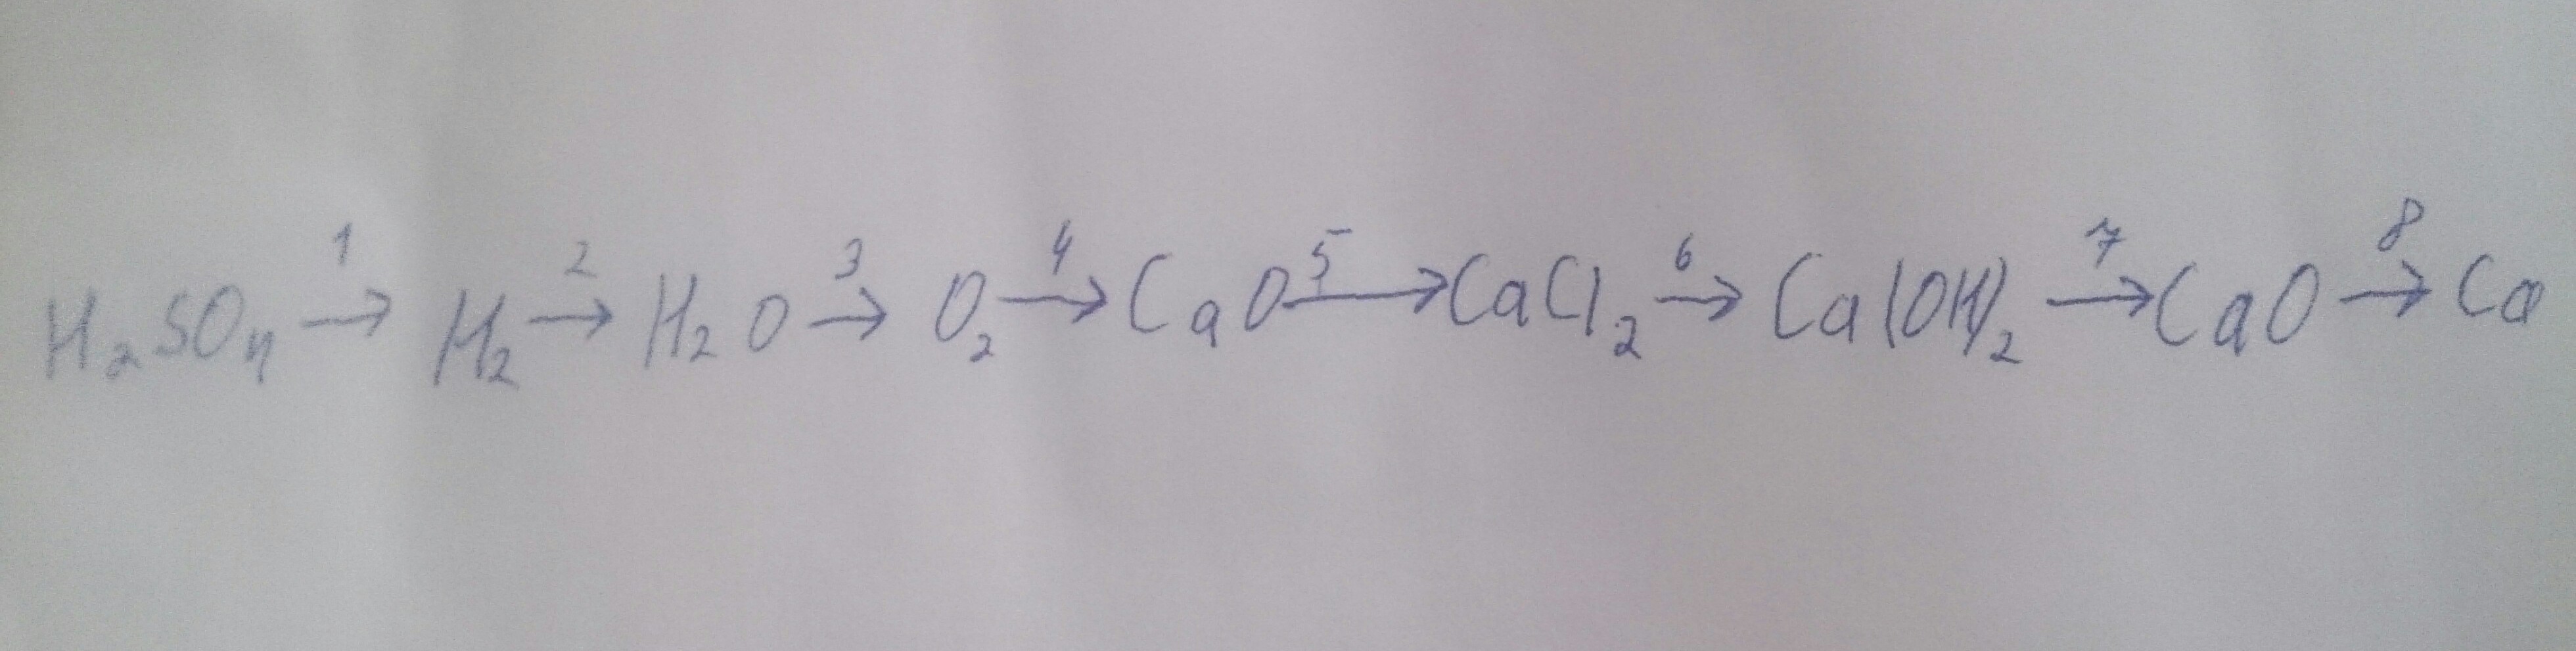 H₂SO₄ →¹ H₂ →² H₂O →³ O₂ →⁴ CaO →⁵ CaCl₂ →⁶ Ca(OH)₂ →⁷ CaO →⁸ Ca